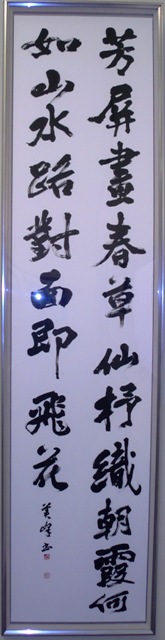 芳屏畫春草仙杼織朝霞何
如山水路對面即飛花